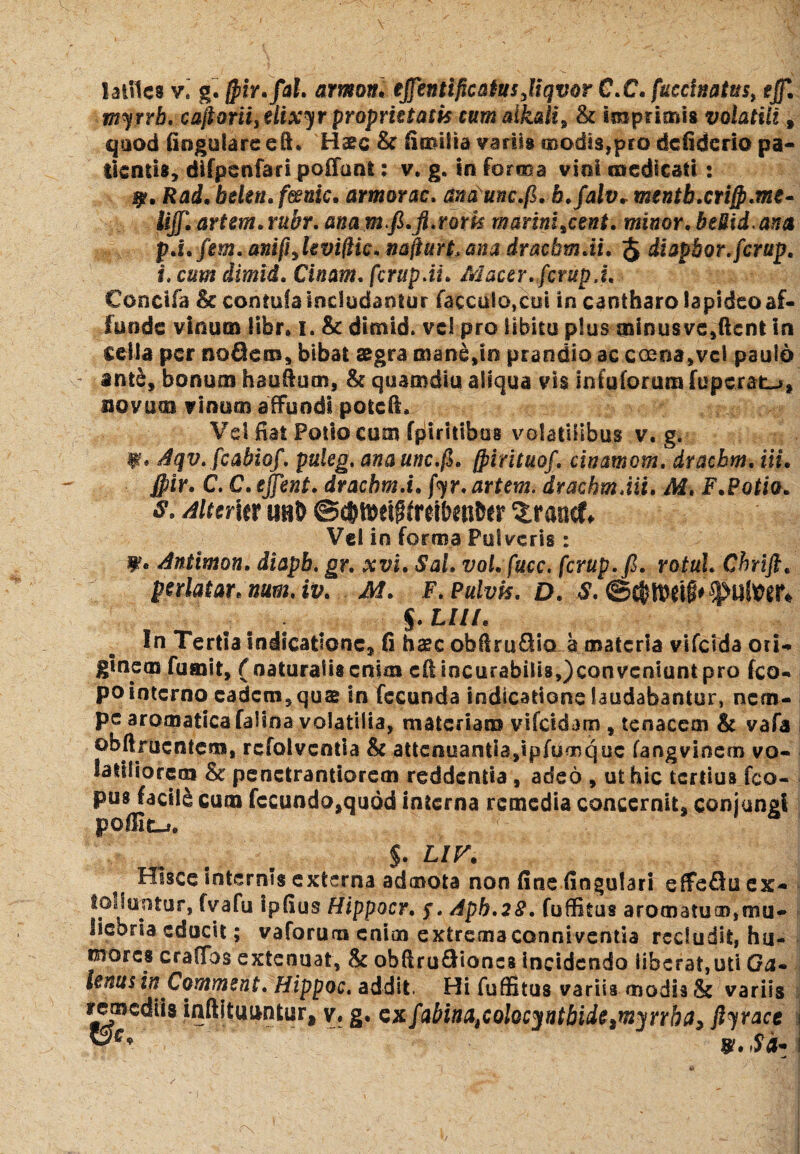 latiles v. g. ſpir. ſal. armon. eſſentificatus, liqvor C.C. ſuccinatus, eſſ.
myrrh. caſtorii, elixyr proprietatis cum alkali, & imprimis volatili,
quod ſingulare eſt. Hæc & ſimilia variis modis, pro deſiderio pa-
tientis, diſpenſari poſſunt: v. g. in forma vini medicati:
℞. Rad. helen. fœnic. armorac. ana unc.ß. h. ſalv. menth. criſp. me-
liſſ. artem. rubr. ana m.ß. fl. roris marini, cent. minor. bellid. ana
p.i. ſem. aniſi, leviſtic. naſturt. ana drachm.ii. ♁ diaphor. ſcrup.
i. cum dimid. Cinam. ſcrup.ii. Macer. ſcrup.i.
Conciſa & contuſa includantur ſacculo, cui in cantharo lapideo af-
funde vinum libr. 1. & dimid. vel pro libitu plus minusve, ſtent in
cella per noctem, bibat ægra manè, in prandio ac cœna, vel paulò
antè, bonum hauſtum, & quamdiu aliqua vis infuſorum ſuperat,
novum vinum affundi poteſt.
Vel fiat Potio cum ſpiritibus volatilibus v. g.
℞. Aqv. ſcabioſ. puleg. ana unc.ß. ſpirituoſ. cinamom. drachm. iii.
ſpir. C. C. eſſent. drachm.i. ſyr. artem. drachm.iii. M. F. Potio.
S. Alterier und Schweißtreibender Tranck.
Vel in forma Pulveris:
℞. Antimon. diaph. gr. xvi. Sal. vol. ſucc. ſcrup. ß. rotul. Chriſt.
perlatar. num. iv. M. F. Pulvis. D. S. Schweiß-Pulver.
§. LIII.
In Tertia indicatione, ſi hæc obſtructio à materia viſcida ori-
ginem ſumit, (naturalis enim eſt incurabilis,) conveniunt pro ſco-
po interno eadem, quæ in ſecunda indicatione laudabantur, nem-
pe aromatica ſalina volatilia, materiam viſcidam, tenacem & vaſa
obſtruentem, reſolventia & attenuantia, ipſumque ſangvinem vo-
latiliorem & penetrantiorem reddentia, adeò, ut hic tertius ſco-
pus facilè cum ſecundo, quòd interna remedia concernit, conjungi
poſſit.
§. LIV.
Hisce internis externa admota non ſine ſingulari effectu ex-
tolluntur, ſvaſu ipſius Hippocr. 5. Aph. 28. ſuffitus aromatum, mu-
liebria educit; vaſorum enim extrema conniventia recludit, hu-
mores craſſos extenuat, & obſtructiones incidendo liberat, uti Ga-
lenus in Comment. Hippoc. addit. Hi ſuffitus variis modis & variis
remediis inſtituuntur, v. g. ex ſabina, colocynthide, myrrha, ſtyrace
&c.
℞. Sa-